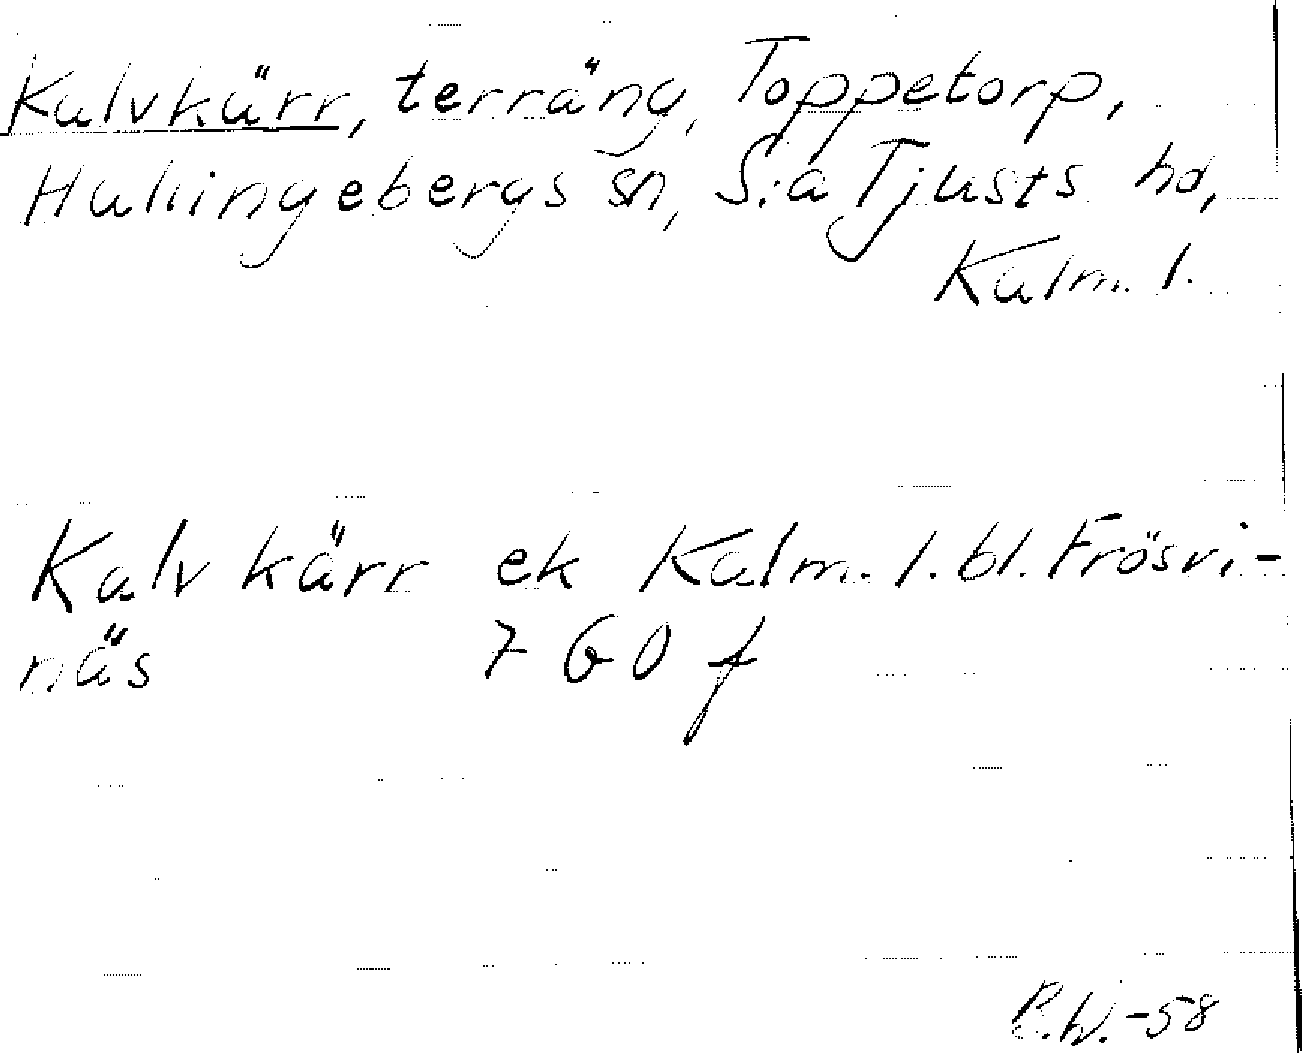 Kalvkärr, terräng, Toppetorp,
Hallingebergs sn, S:a Tjusts hd,
Kalm. l.
Kalvkärr ek Kalm. l. bl. Frösvi-
näs 7 G 0 f
R.W.-58